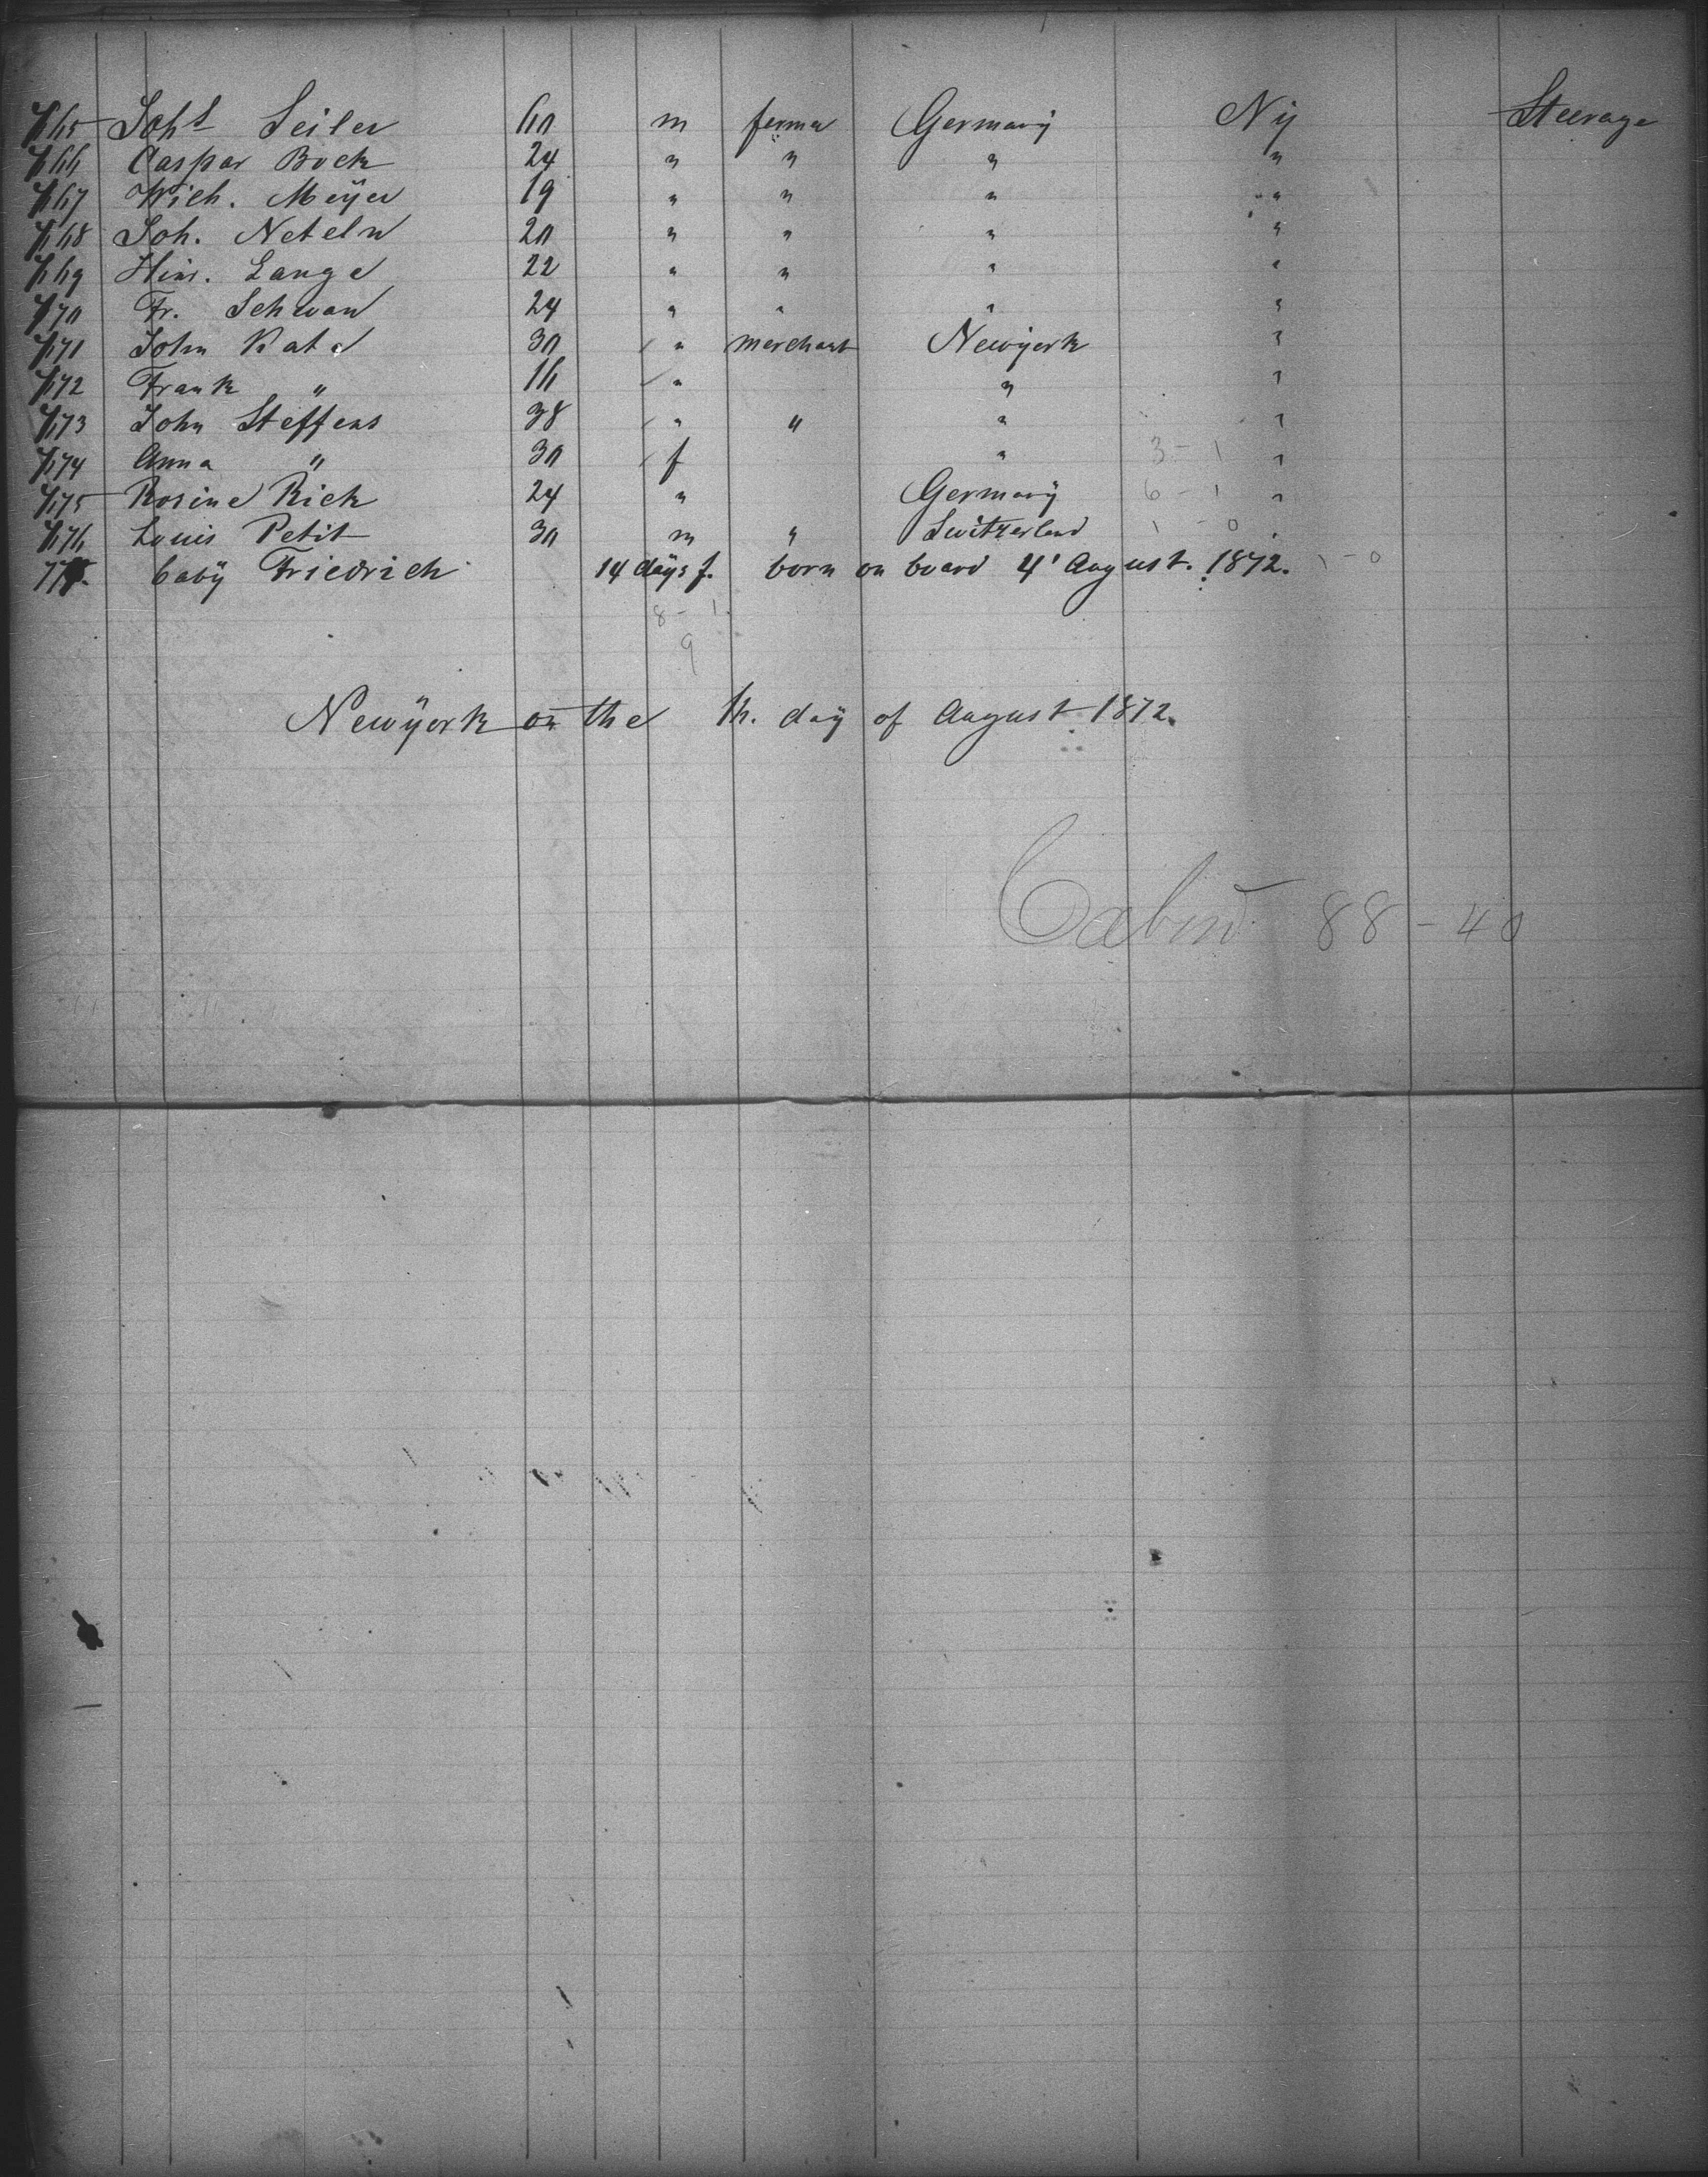 765 Joh^s Seiler 60 m ferma Germany Ny Steerage
766 Caspar Bock 24 " " " "
767 Wich. Meÿer 19 " " " "
768 Joh. Neteln 20 " " " "
769 Hinr. Lange 22 " " " "
770 Fr. Schwan 24 " " " "
771 John Kate 30 " merchant Newÿork "
772 Frank " 16 " " "
773 John Steffens 38 " " " "
774 Anna " 30 f " 3 - 1 "
775 Rosine Rick 24 " Germanÿ 6 - 1 "
776 Louis Petit 30 m " Switzerland 1 - 0 "
777. babÿ Friedrich 14 daÿs f. born on board 4' August. 1872. 1 - 0
8 - 1
9
Newÿork on the 16. daÿ of August 1872.
Cabin 88 - 40